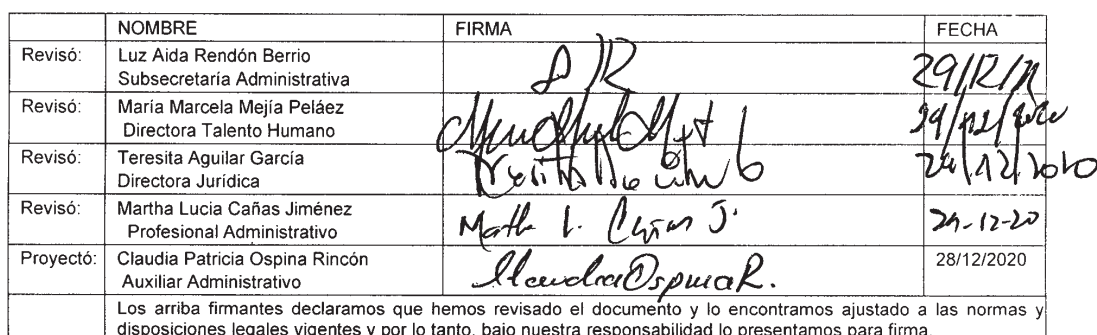 NOMBRE FIRMA FECHA
Revisó: Luz Aida Rendón Berrio
Subsecretaría Administrativa
29/12/
Revisó: María Marcela Mejía Peláez
Directora Talento Humano
29/12/2020
Revisó: Teresita Aguilar García
Directora Jurídica
29/12/2020
Revisó: Martha Lucia Cañas Jiménez
Profesional Administrativo
Martha L. Cañas J. 29-12-20
Proyectó: Claudia Patricia Ospina Rincón
Auxiliar Administrativo
Claudia Ospina R. 28/12/2020
Los arriba firmantes declaramos que hemos revisado el documento y lo encontramos ajustado a las normas y
disposiciones legales vigentes y por lo tanto, bajo nuestra responsabilidad lo presentamos para firma